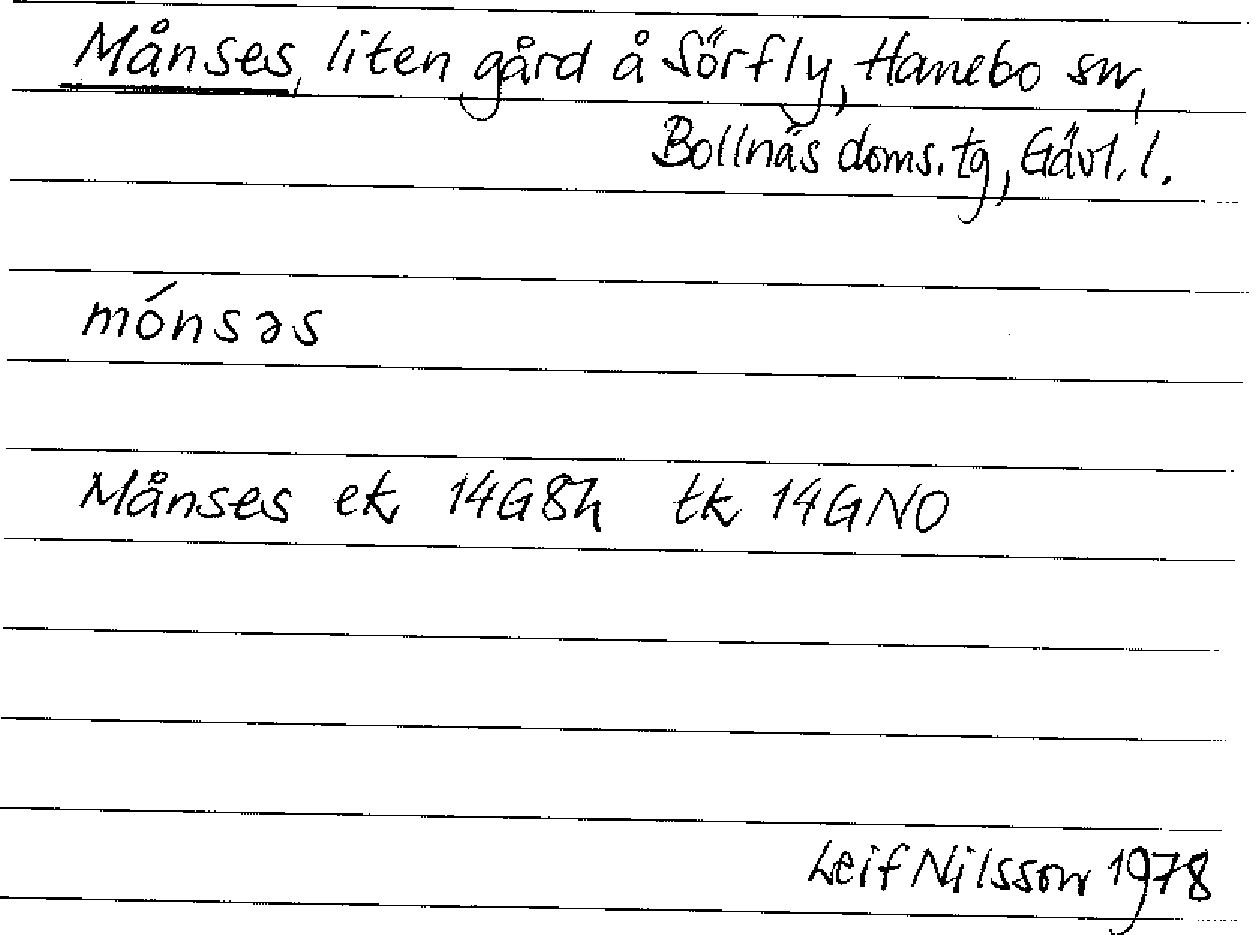 Månses, liten gård å Sörfly, Hanebo sn,
Bollnäs doms.tg, Gävl. l.
mónsəs
Månses ek 14G8h tk 14GNO
Leif Nilsson 1978